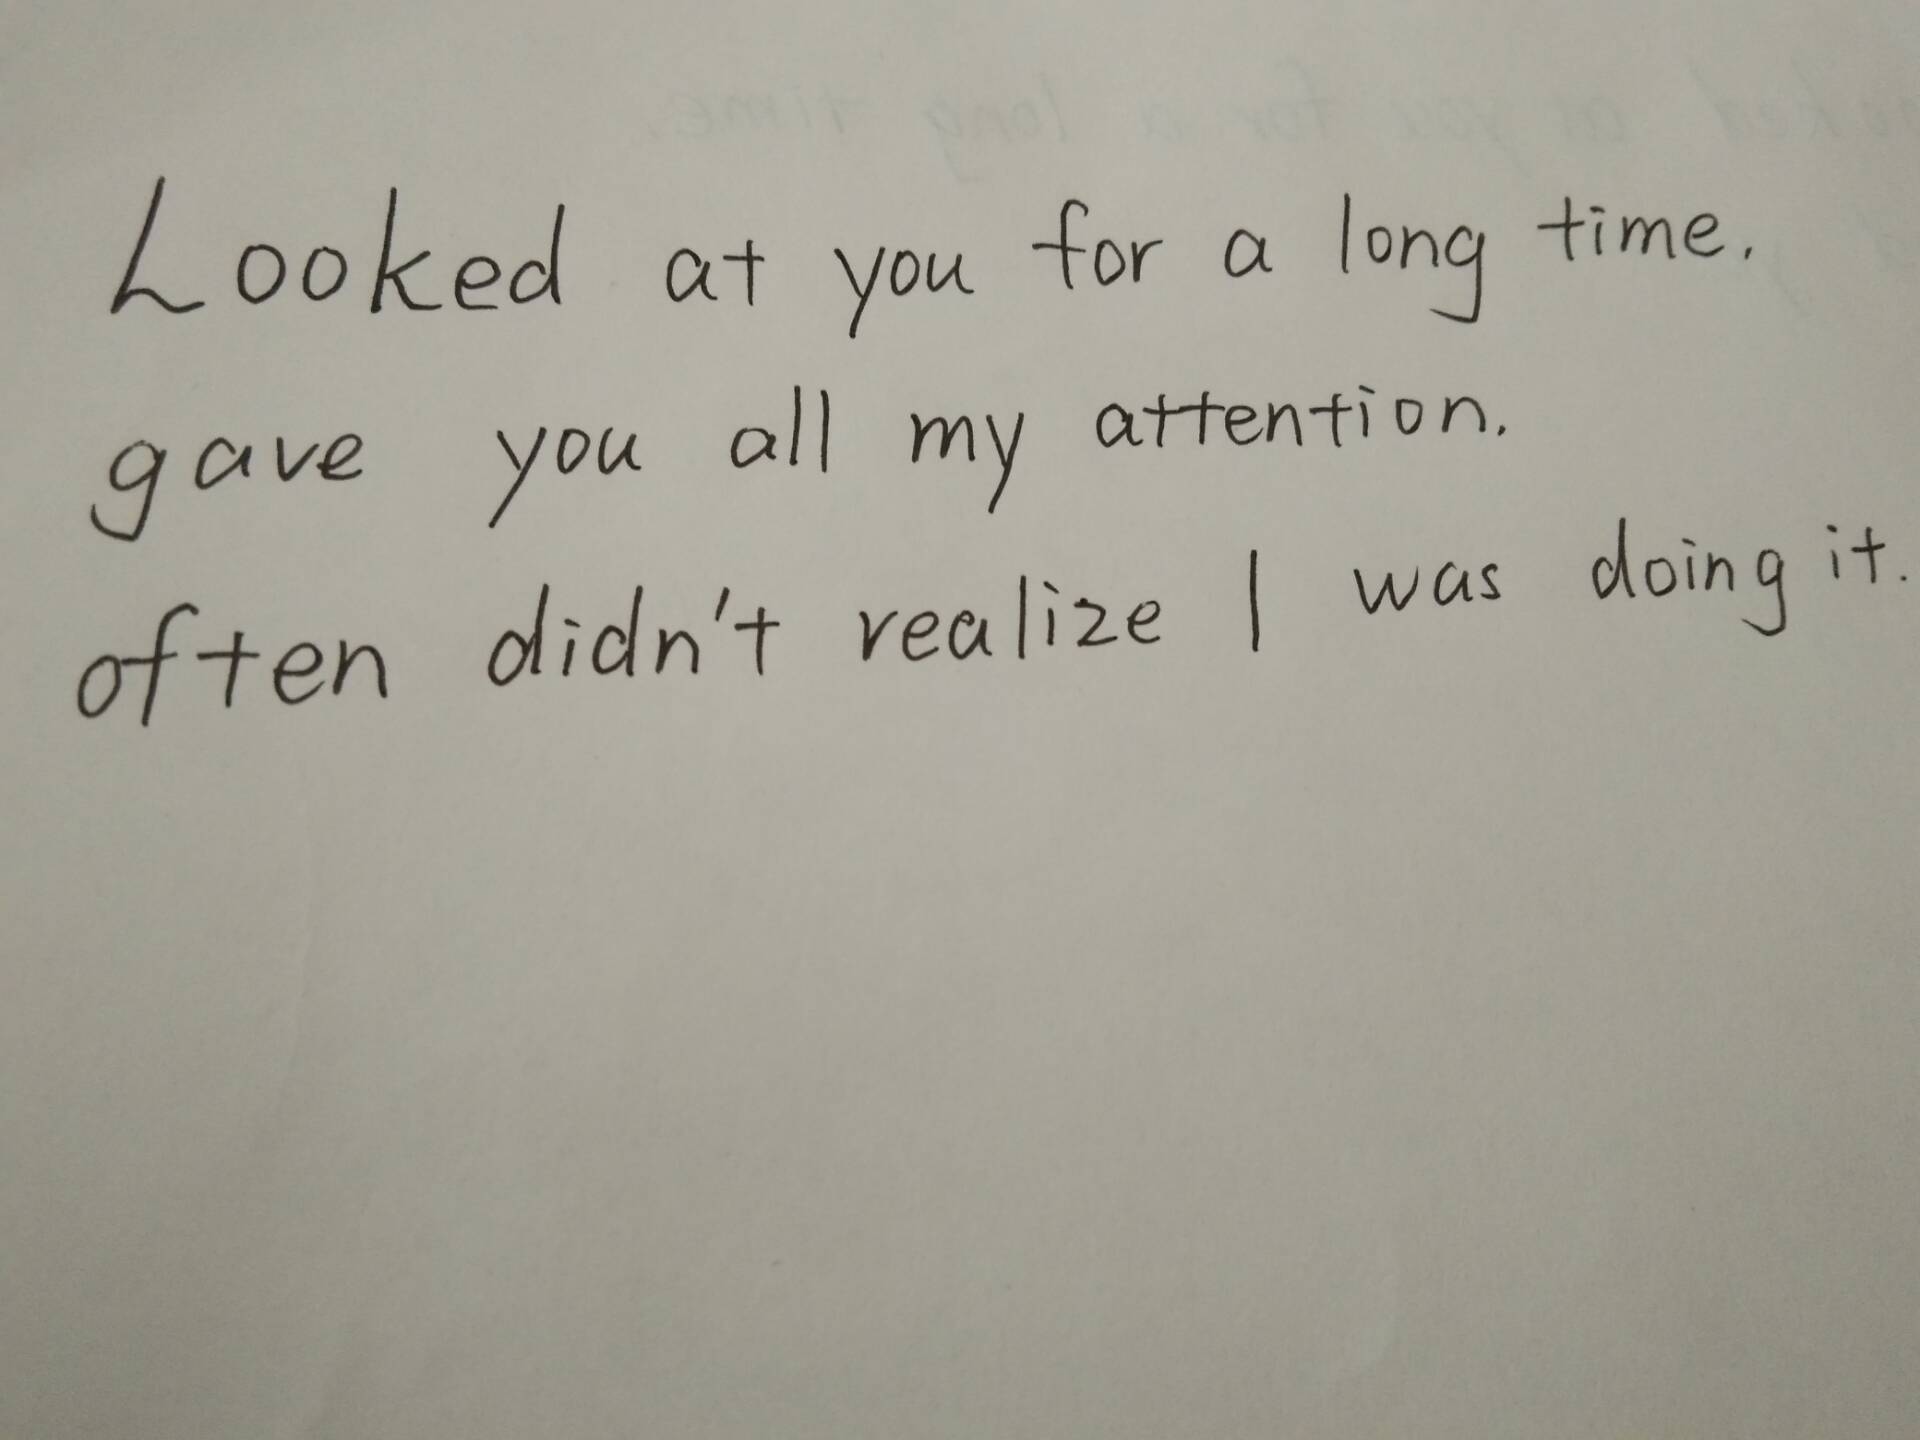 Looked at you for a long time.
gave you all my attention.
often didn't realize I was doing it.